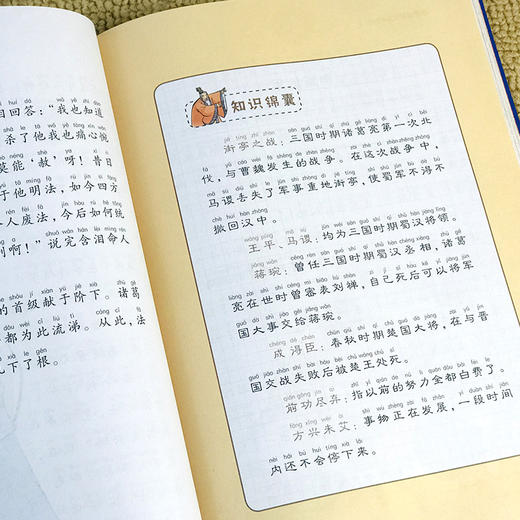 目回答：“我也知道
杀了他我也痛心惋
莫能‘赦’呀！昔日
于他明法，如今四方
人废法，今后如何统
别啊！”说完含泪命人
的首级献于阶下。诸葛
都为此流涕。从此，法
下了根。
知识锦囊
jiē tíng zhī zhàn
街亭之战：三国时期诸葛亮第一次北
伐，与曹魏发生的战争。在这次战争中，
马谡丢失了军事重地街亭，使蜀军不得不
chè huí hàn zhōng
撤回汉中。
wáng píng
王平、马谡：均为三国时期蜀汉将领。
jiǎng wǎn
蒋琬：曾任三国时期蜀汉丞相，诸葛
亮在世时曾密表刘禅，自己死后可以将军
guó dà shì wén gěi jiǎng wǎn
国大事交给蒋琬。
chéng dé chén
成得臣：春秋时期楚国大将，在与晋
国交战失败后被楚王处死。
qián gōng jìn qì
前功尽弃：指以前的努力全部白费了。
fāng xīng wèi ài
方兴未艾：事物正在发展，一段时间
nèi hái bú huì tíng xià lái
内还不会停下来。